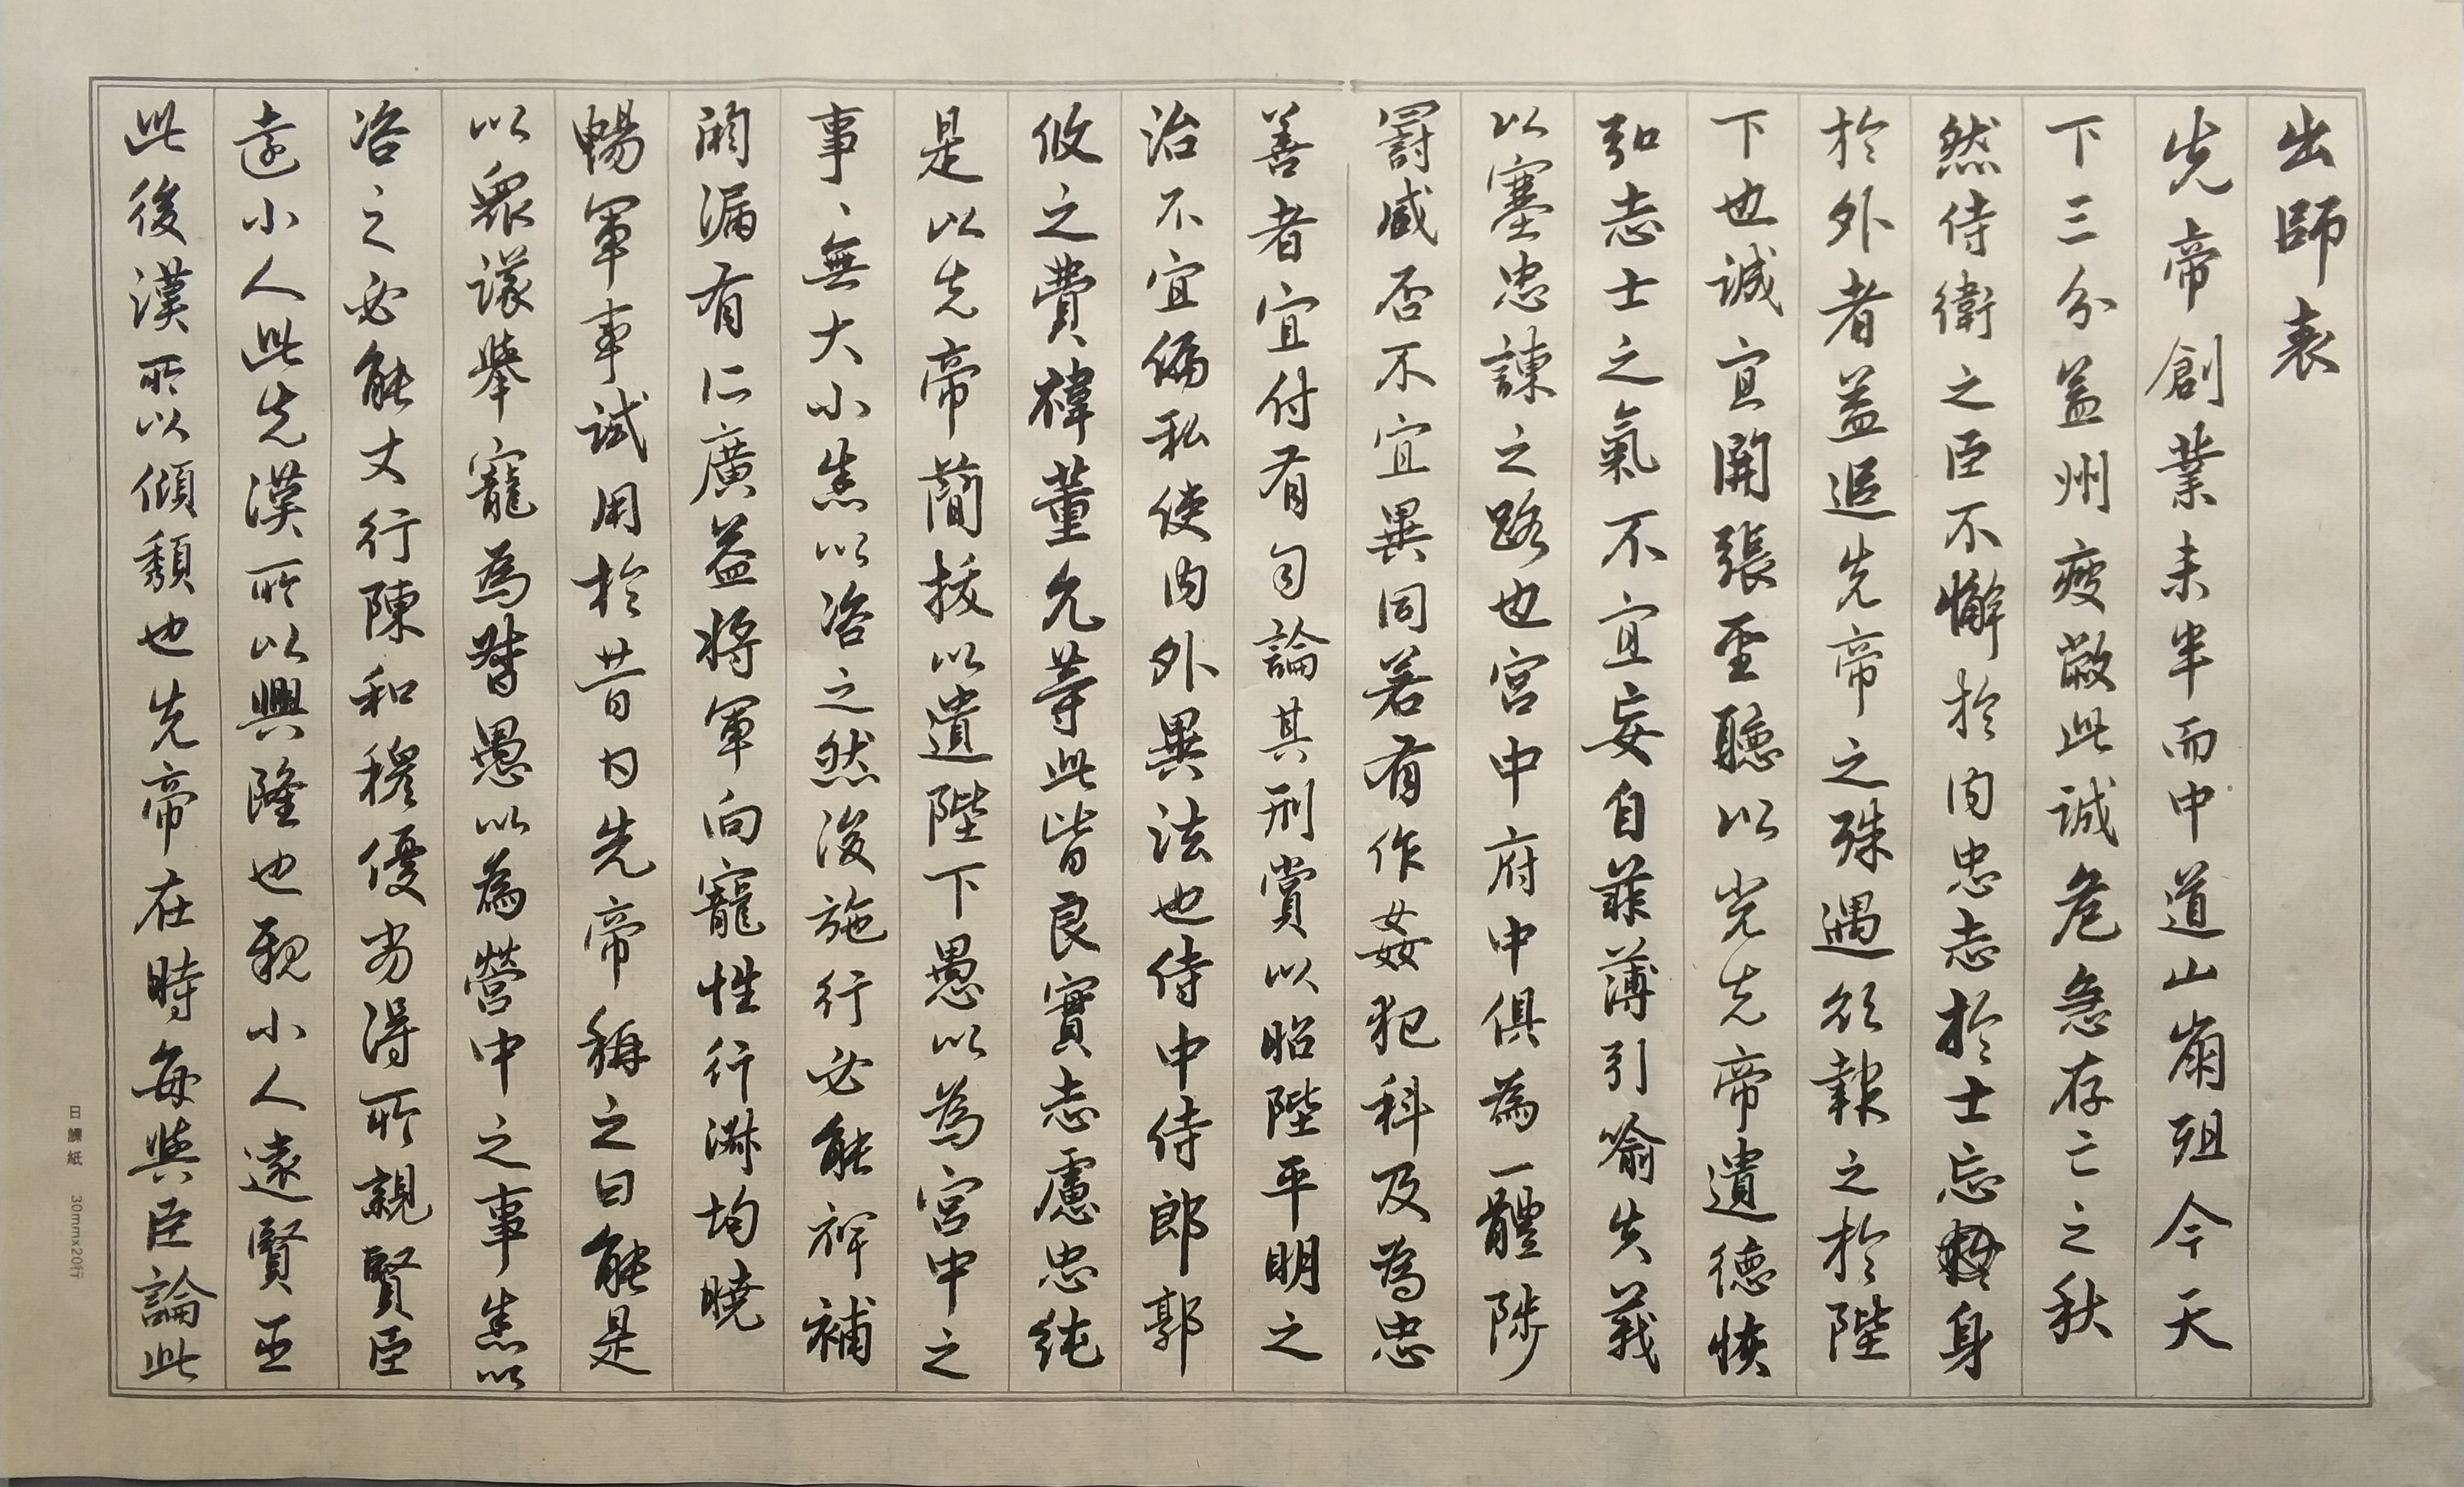 出師表
先帝創業未半而中道崩殂今天
下三分益州疲敝此誠危急存亡之秋
然侍衛之臣不懈於內忠志於士忘身
於外者蓋追先帝之殊遇欲報之於陛
下也誠宜開張聖聽以光先帝遺德恢
弘志士之氣不宜妄自菲薄引喻失義
以塞忠諫之路也宮中府中俱為一體陟
罰臧否不宜異同若有作姦犯科及為忠
善者宜付有司論其刑賞以昭陛平明之
治不宜偏私使內外異法也侍中侍郎郭
攸之費禕董允等此皆良實志慮忠純
是以先帝簡拔以遺陛下愚以為宮中之
事、無大小悉以咨之然後施行必能裨補
闕漏有所廣益將軍向寵性行淑均曉
暢軍事試用於昔日先帝稱之曰能是
以眾議舉寵為督愚以為營中之事悉以
咨之必能丈行陳和穆優劣得所親賢臣
遠小人此先漢所以興隆也親小人遠賢臣
此後漢所以傾頹也先帝在時每與臣論此
日課紙 30mmx20行